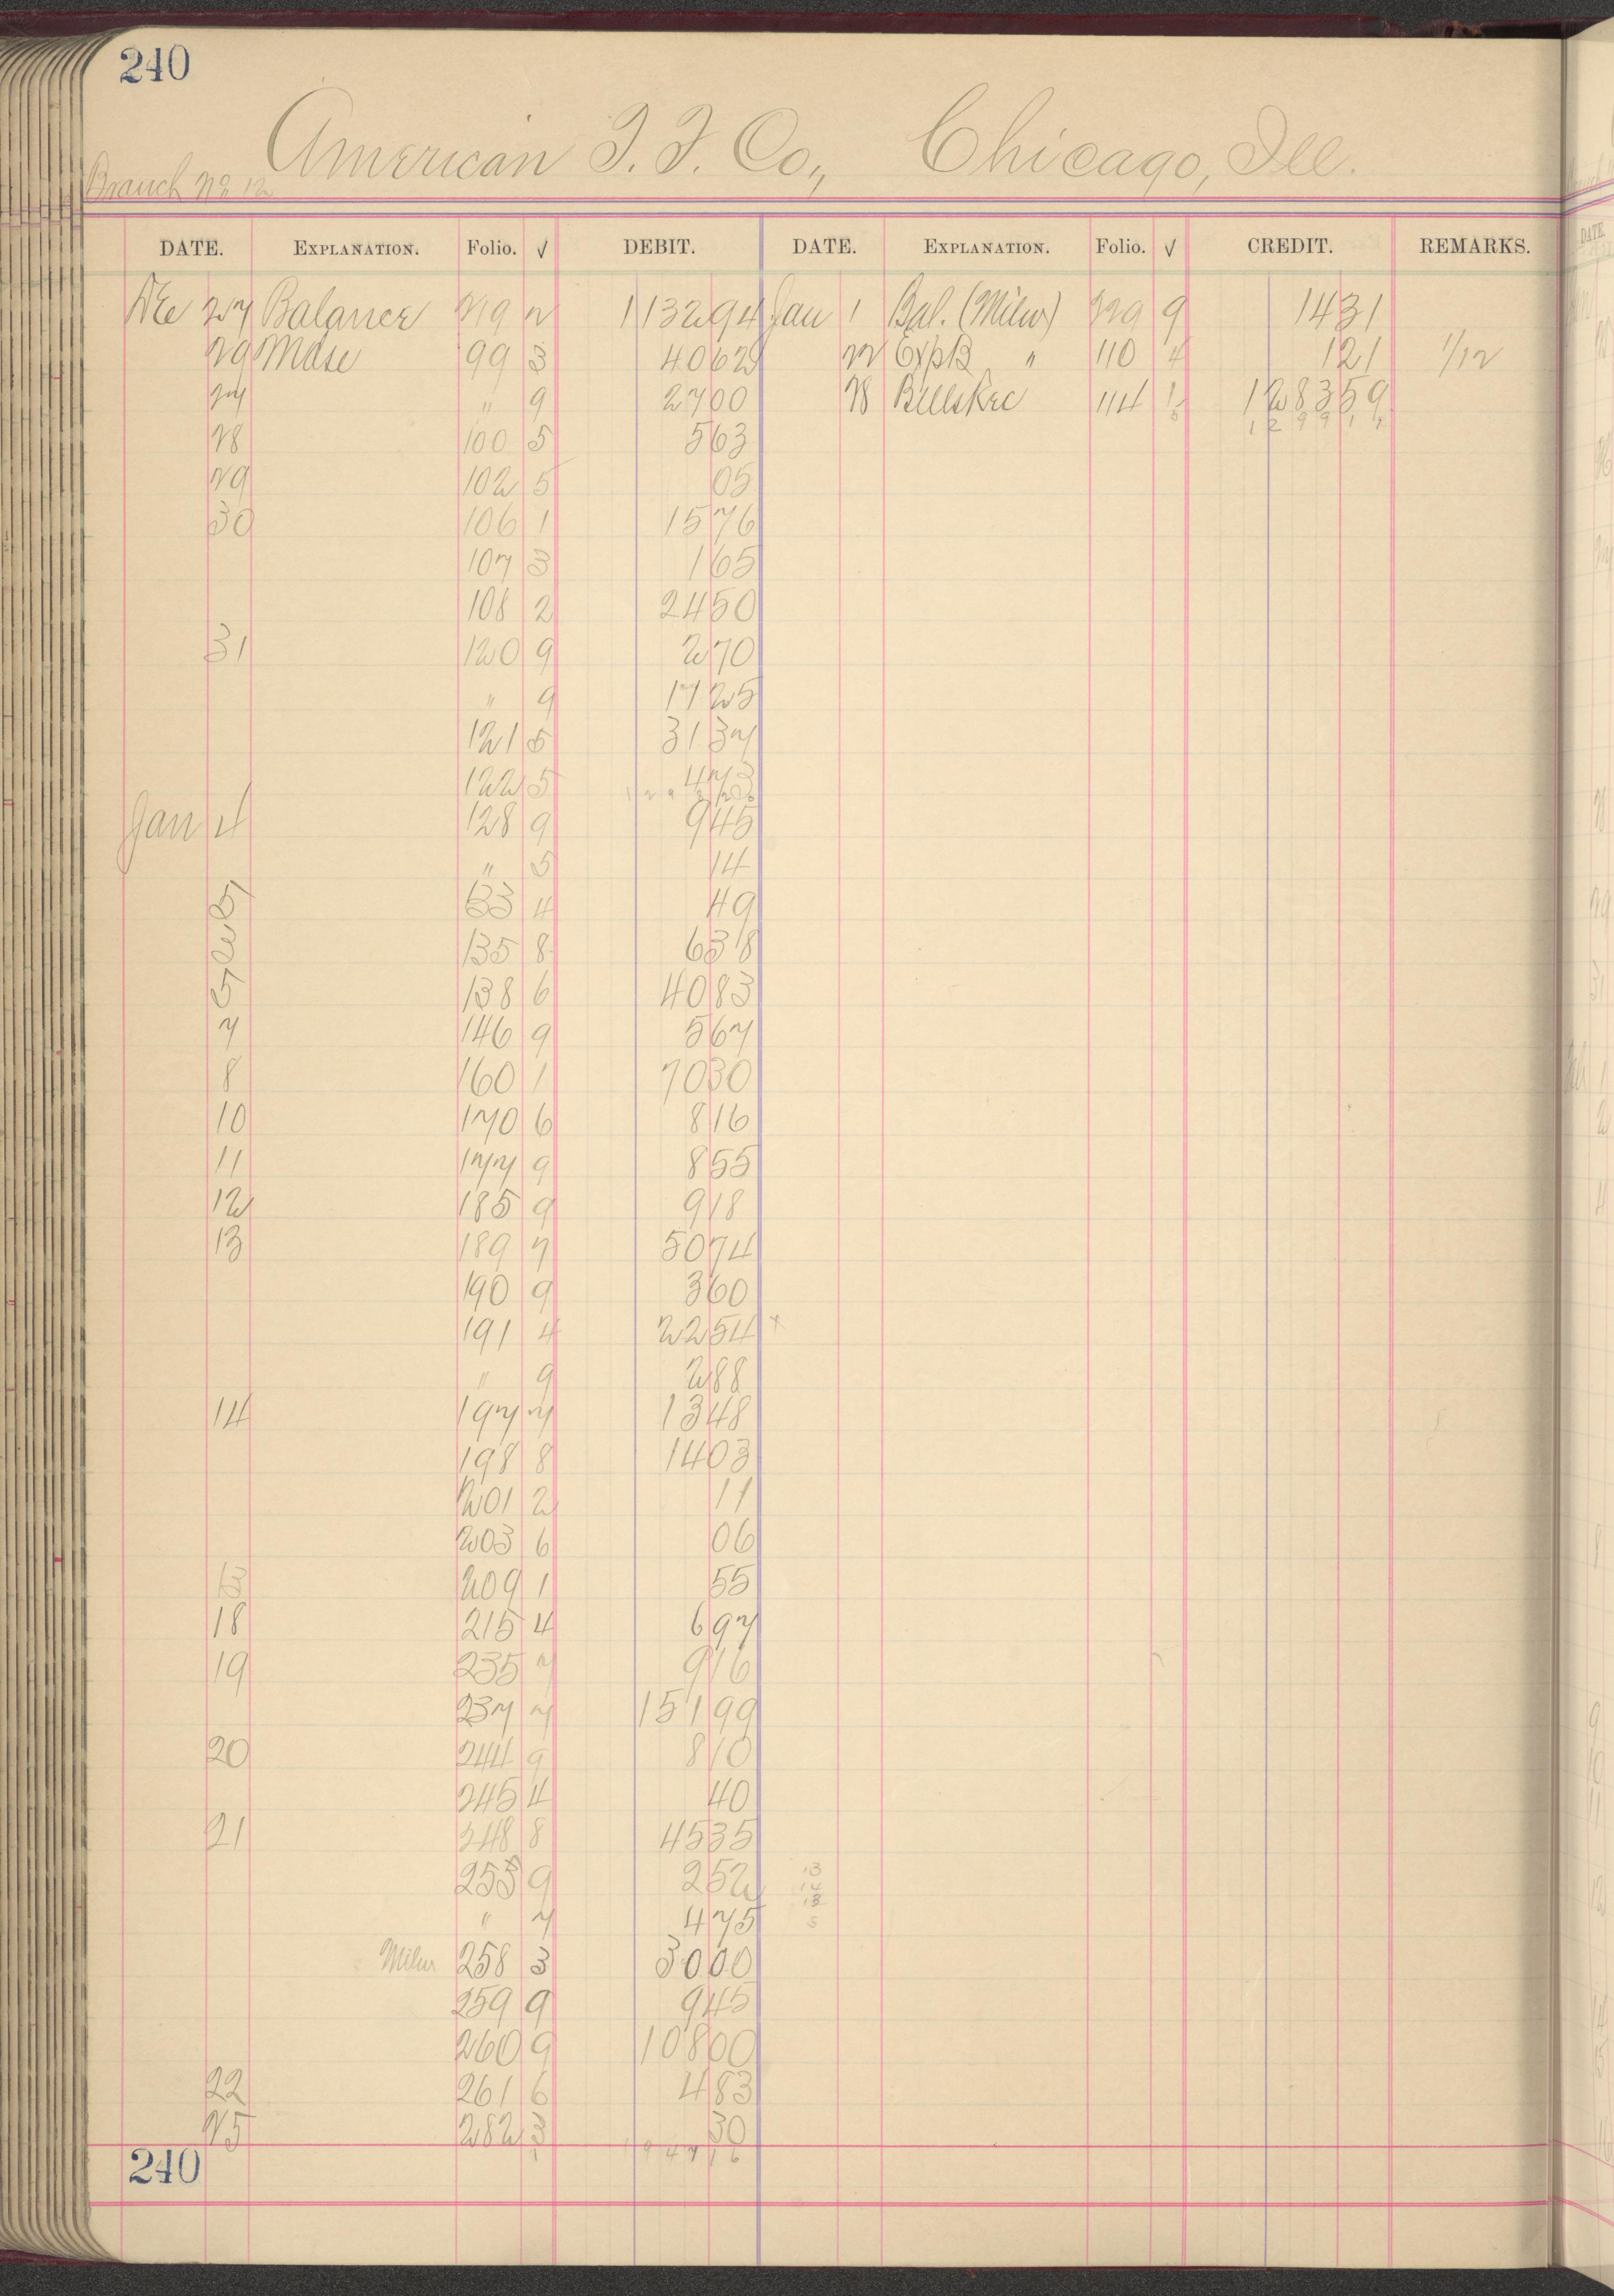 240
American T. F. Co., Chicago, Ill.
Branch No 12
DATE. EXPLANATION. Folio. √ DEBIT. DATE. EXPLANATION. Folio. √ CREDIT. REMARKS.
Dec 27 Balance 219 2 1132 94 Jan 1 Bal. (Milw) 229 9 14 31
29 Mdse 99 3 40 62 22 ExpB " 110 4 1 21 1/12
27 " 9 27 00 28 BillsRec 114 1283 59
28 100 5 5 63 1299 11
29 102 5 05
30 106 1 15 76
107 3 1 65
108 2 24 50
31 120 9 2 70
" 9 17 25
121 5 31 37
122 5 4 73
Jan 4 128 9 9 45
" 5 14
133 4 49
135 8 6 38
138 6 40 83
7 146 9 5 67
8 160 1 70 30
10 170 6 8 16
11 177 9 8 55
12 185 9 9 18
13 189 7 50 74
190 9 3 60
191 4 22 54 x
" 9 2 88
14 197 7 13 48
198 8 14 03
201 2 11
203 6 06
209 1 55
18 215 4 6 97
19 235 7 9 16
237 7 151 99
20 244 9 8 10
245 4 40
21 248 8 45 35
255 9 2 52 13
" 7 4 75
Milw 258 3 30 00
259 9 9 45
260 9 108 00
22 261 6 4 83
25 282 3 30
1947 16
240